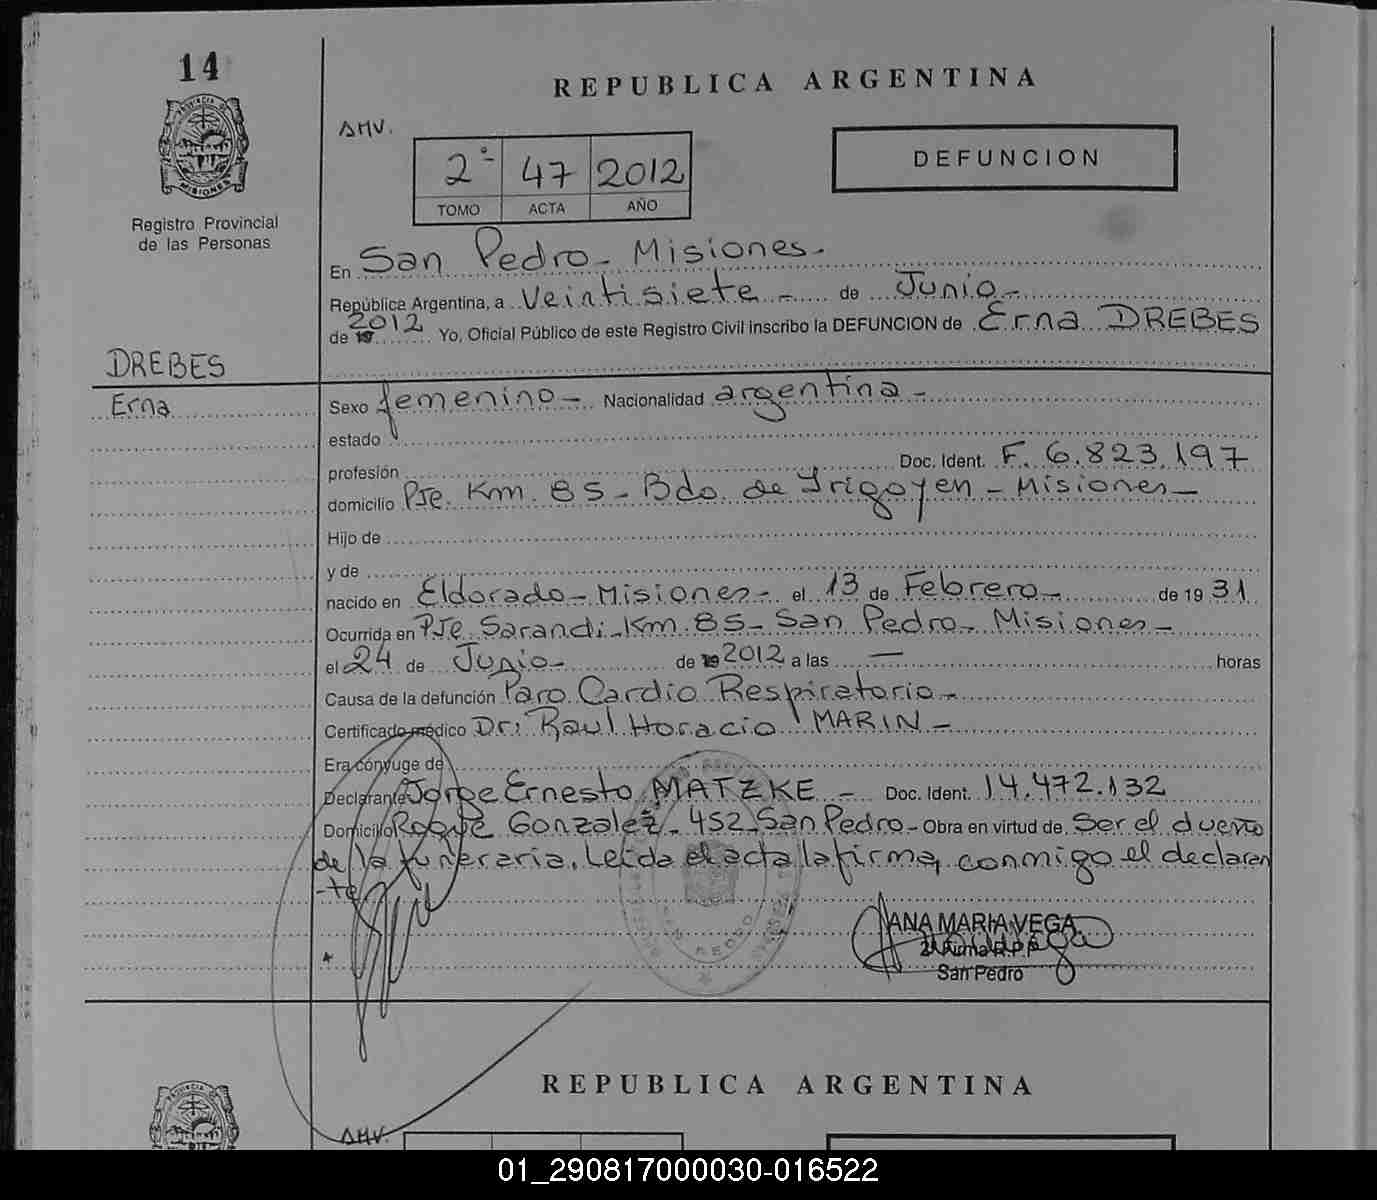 14
PROVINCIA DE
MISIONES
Registro Provincial
de las Personas
DREBES
Erna
REPUBLICA ARGENTINA
AMV.
2º 47 2012
TOMO ACTA AÑO
DEFUNCION
En San Pedro - Misiones -
República Argentina, a Veintisiete - de Junio -
de 2012 Yo, Oficial Público de este Registro Civil inscribo la DEFUNCION de Erna DREBES
Sexo femenino - Nacionalidad argentina -
estado
profesión Doc. Ident. F. 6.823.197
domicilio Pje. Km. 85 - Bdo. de Irigoyen - Misiones -
Hijo de
y de
nacido en Eldorado - Misiones - el 13 de Febrero - de 19 31
Ocurrida en Pje. Sarandi - Km. 85 - San Pedro - Misiones -
el 24 de Junio - de 2012 a las — horas
Causa de la defunción Paro Cardio Respiratorio -
Certificado médico Dr: Raul Horacio MARIN -
Era cónyuge de
Declarante Jorge Ernesto MATZKE - Doc. Ident. 14.472.132
Domicilio Roque Gonzalez - 452 - San Pedro - Obra en virtud de Ser el dueño
de la funeraria. Leída el acta la firma conmigo el declaran
-te
SAN PEDRO
ANA MARIA VEGA
2ª Firma R.P.P
San Pedro
REPUBLICA ARGENTINA
AMV.
01_290817000030-016522